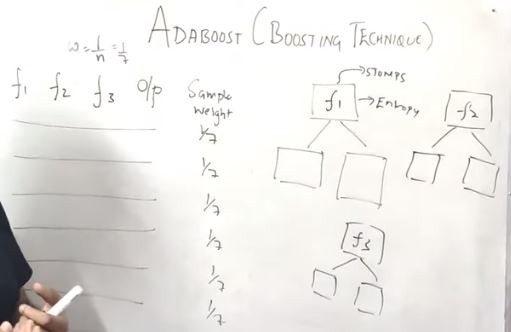 ADABOOST (BOOSTING TECHNIQUE)
w = 1/n = 1/7
f1 f2 f3 O/p Sample weight
1/7
1/7
1/7
1/7
1/7
1/7
f1 → STOMPS
→ Entropy
f2
f3